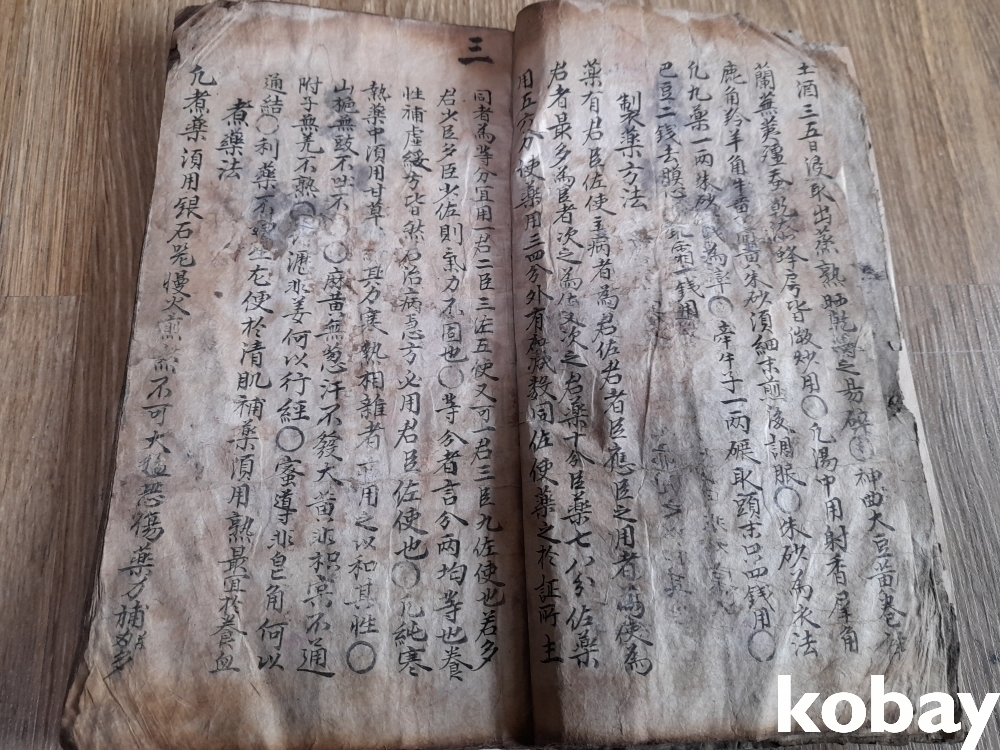 土酒三五日浸取出蒸熟晒乾 之易碎 神曲大豆黃卷
蘭蕪荑殭蚕乾漆蜂房皆微炒用〇凡湯中用射香犀角
鹿角羚羊角牛黃 黃朱砂須細末煎後調服〇朱砂為衣法
凡丸藥一両朱砂 戈為率〇牽牛子一両碾取頭末 四錢用〇
巴豆二錢去膜心 霜一錢用
製藥方法
藥有君臣佐使主病者為君佐君者臣應臣之用者為使為
君者最多為臣者次之為佐又次之君藥十分臣藥七八分佐藥
用五六分使藥用三四分外有加减數同佐使藥之於証所主
三
同者為等分宜用一君二臣三佐五使又可一君三臣九佐使也君多
君少臣多臣少佐則氣力不固也〇等分者言分両均等也養
性補虛緩方皆然若治病 方必用君臣佐使也〇凡純寒
熱藥中須用甘草 其力寒熱相雜者 用之以和其性〇
山梔無豉不吐不 〇麻黃無葱汗不發大黃非枳实不通
附子無 不熱〇 漉非姜何以行經〇蜜導非皂角何以
通結〇利藥 生 便於清肌補藥須用熟最宜於養血
煮藥法
凡煮藥須用銀石 慢火煎 不可大猛恐傷藥力補 多
kobay